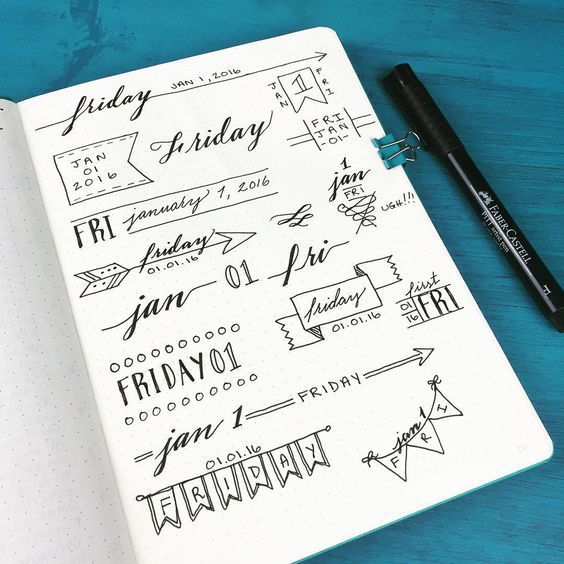 friday JAN 1, 2016
JAN 1 FRI
JAN
01
2016
Friday
FRI
JAN
-01-
FRI january 1, 2016
1
jan
FRI
UGH!!!
friday
01.01.16
jan 01
fri
friday
01.01.16
first
01
16
FRI
FRIDAY 01
jan 1 FRIDAY
01.01.16
FRIDAY
jan 1
FRI
FABER-CASTELL
PITT artist pen
F